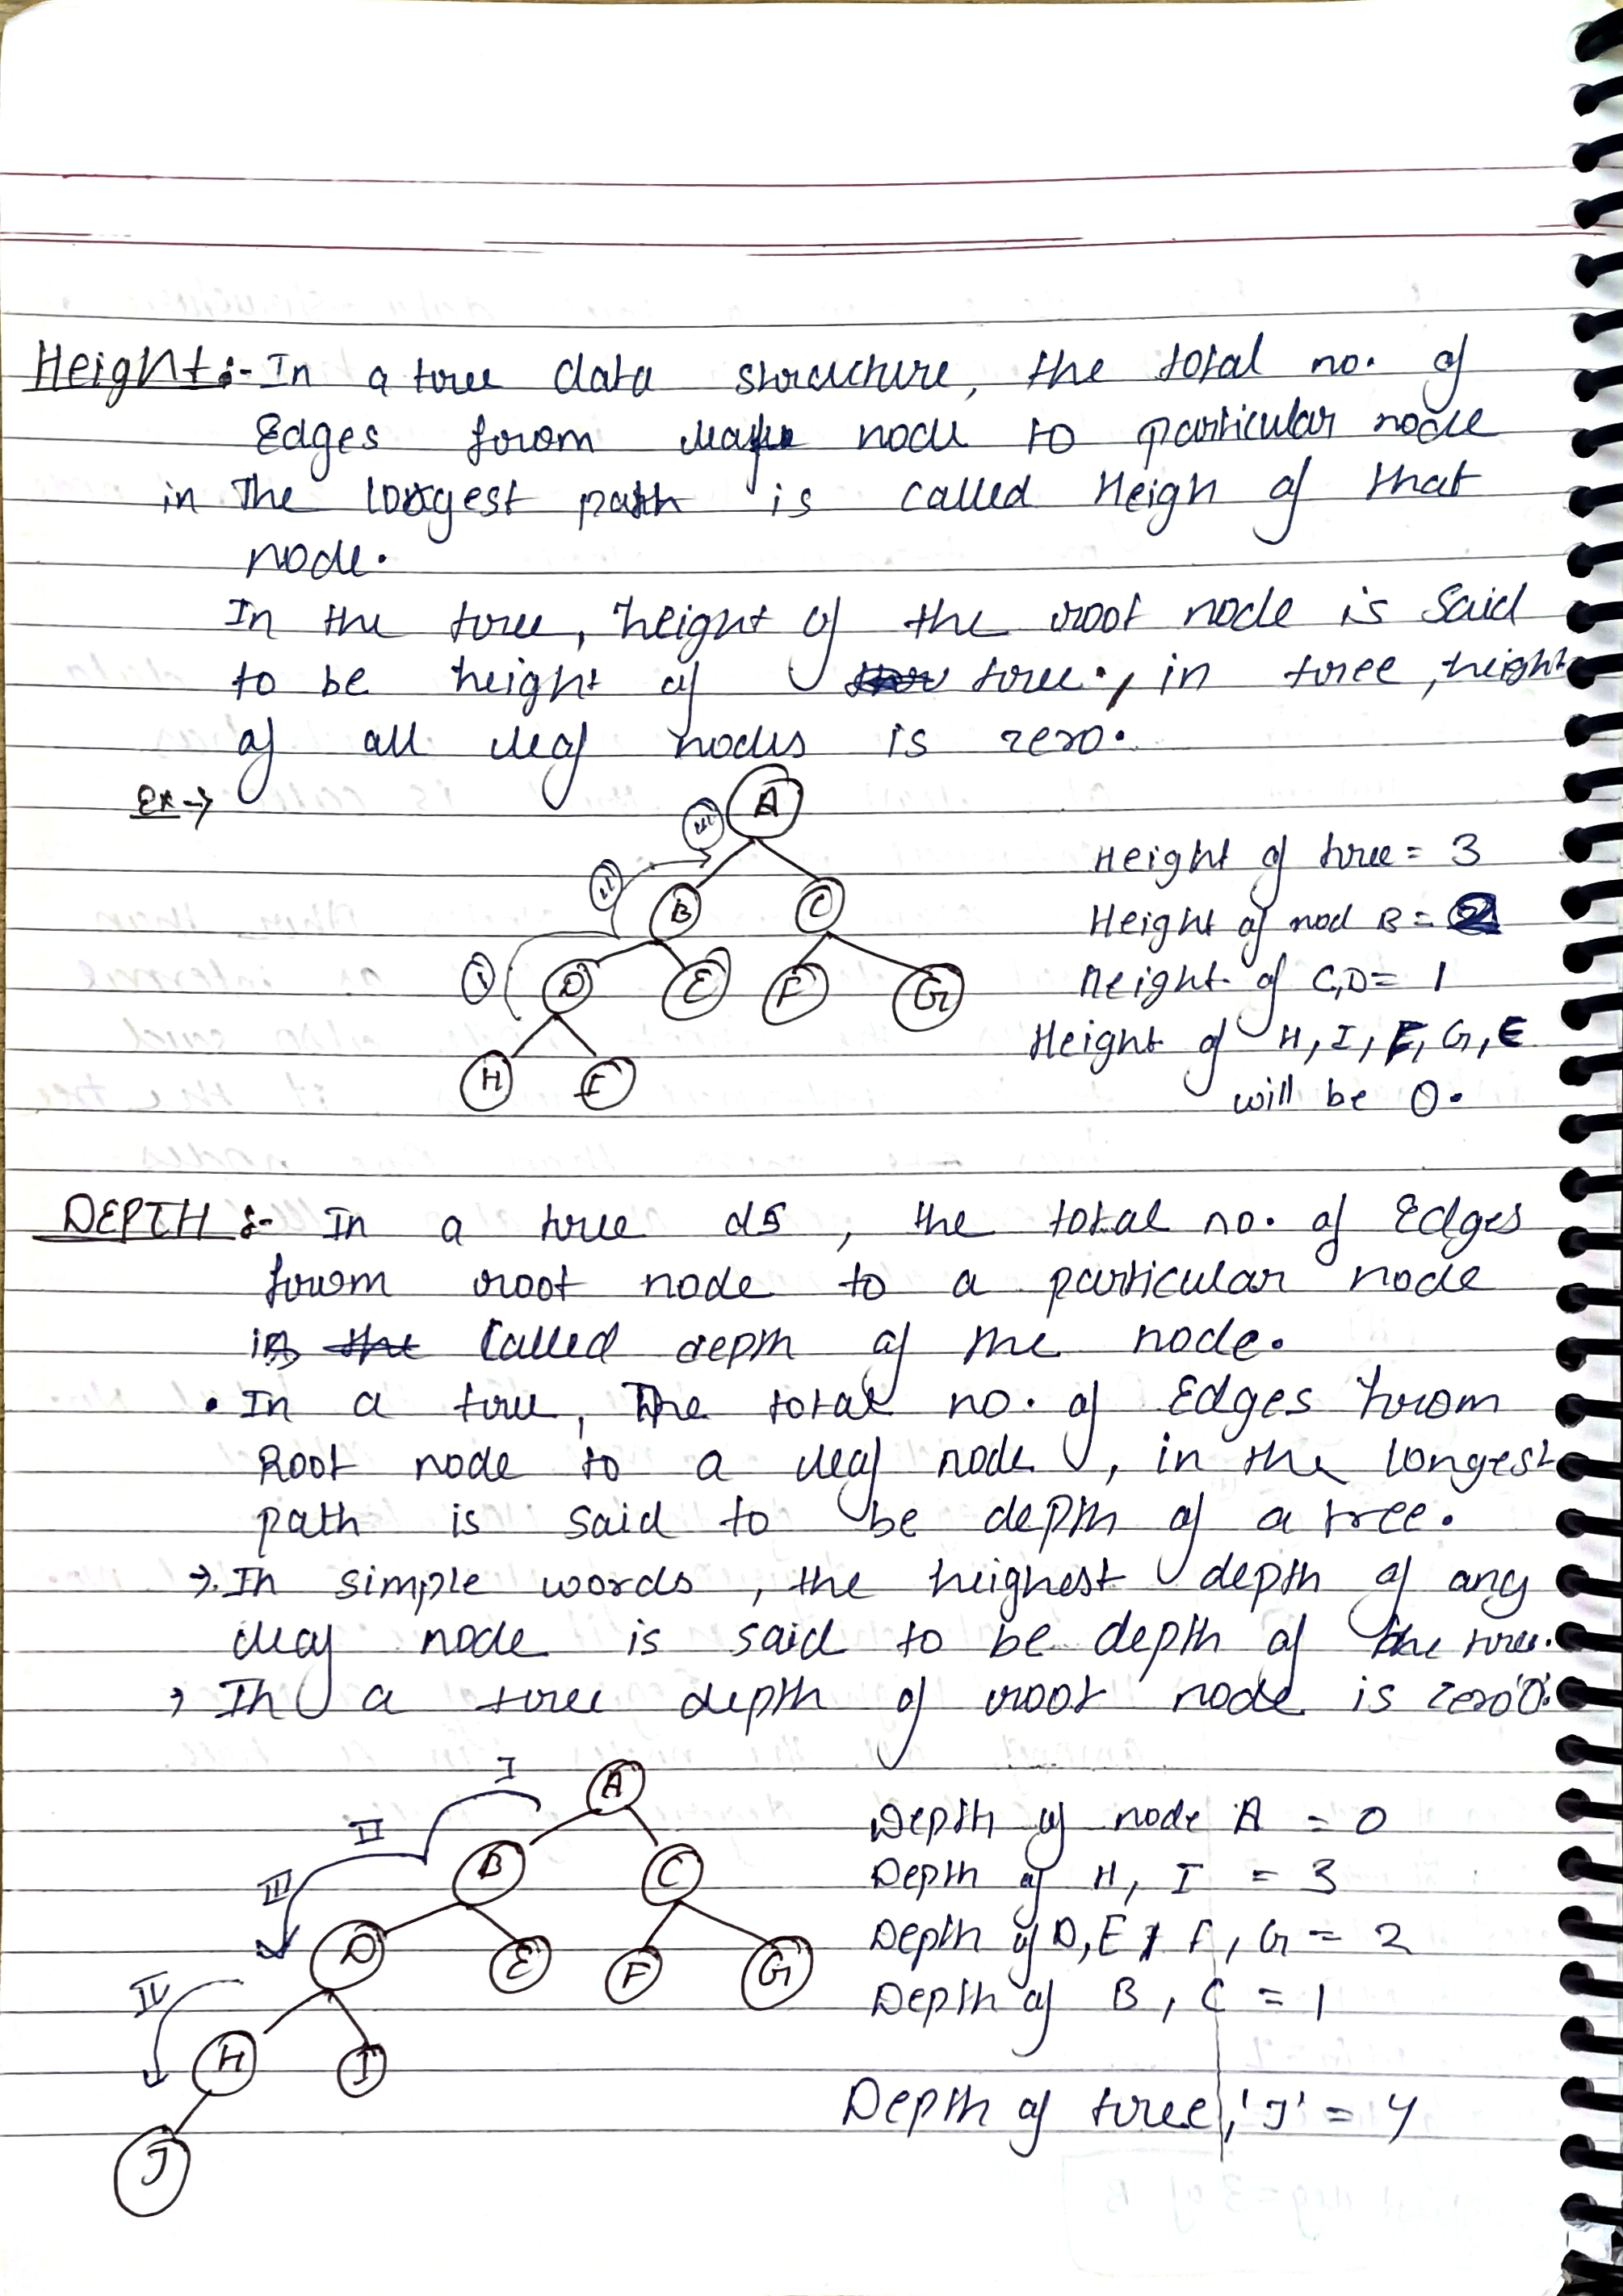 Height:- In a tree data structure, the total no. of
Edges from leaf node to particular node
in The longest path is called Heigh of that
node.
In the tree, height of the root node is Said
to be height of tree., in tree, height
of all leaf nodes is zero.
Ex→
A
III
II
B
C
I
D
E
F
G
H
I
Height of tree = 3
Height of nod B = 2
Height of C,D = 1
Height of H, I, F, G, E
will be 0.
DEPTH :- In a tree ds, the total no. of Edges
from root node to a particular node
is the Called depth of the node.
• In a tree, The total no. of Edges from
Root node to a leaf node, in the longest
path is said to be depth of a tree.
→ In simple words, the heighest depth of any
leaf node is said to be depth of the tree.
→ In a tree depth of root node is zero '0'.
I
A
II
B
C
III
D
E
F
G
IV
H
I
J
Depth of node A = 0
Depth of H, I = 3
Depth of D, E, F, G = 2
Depth of B, C = 1
Depth of tree, 'J' = 4